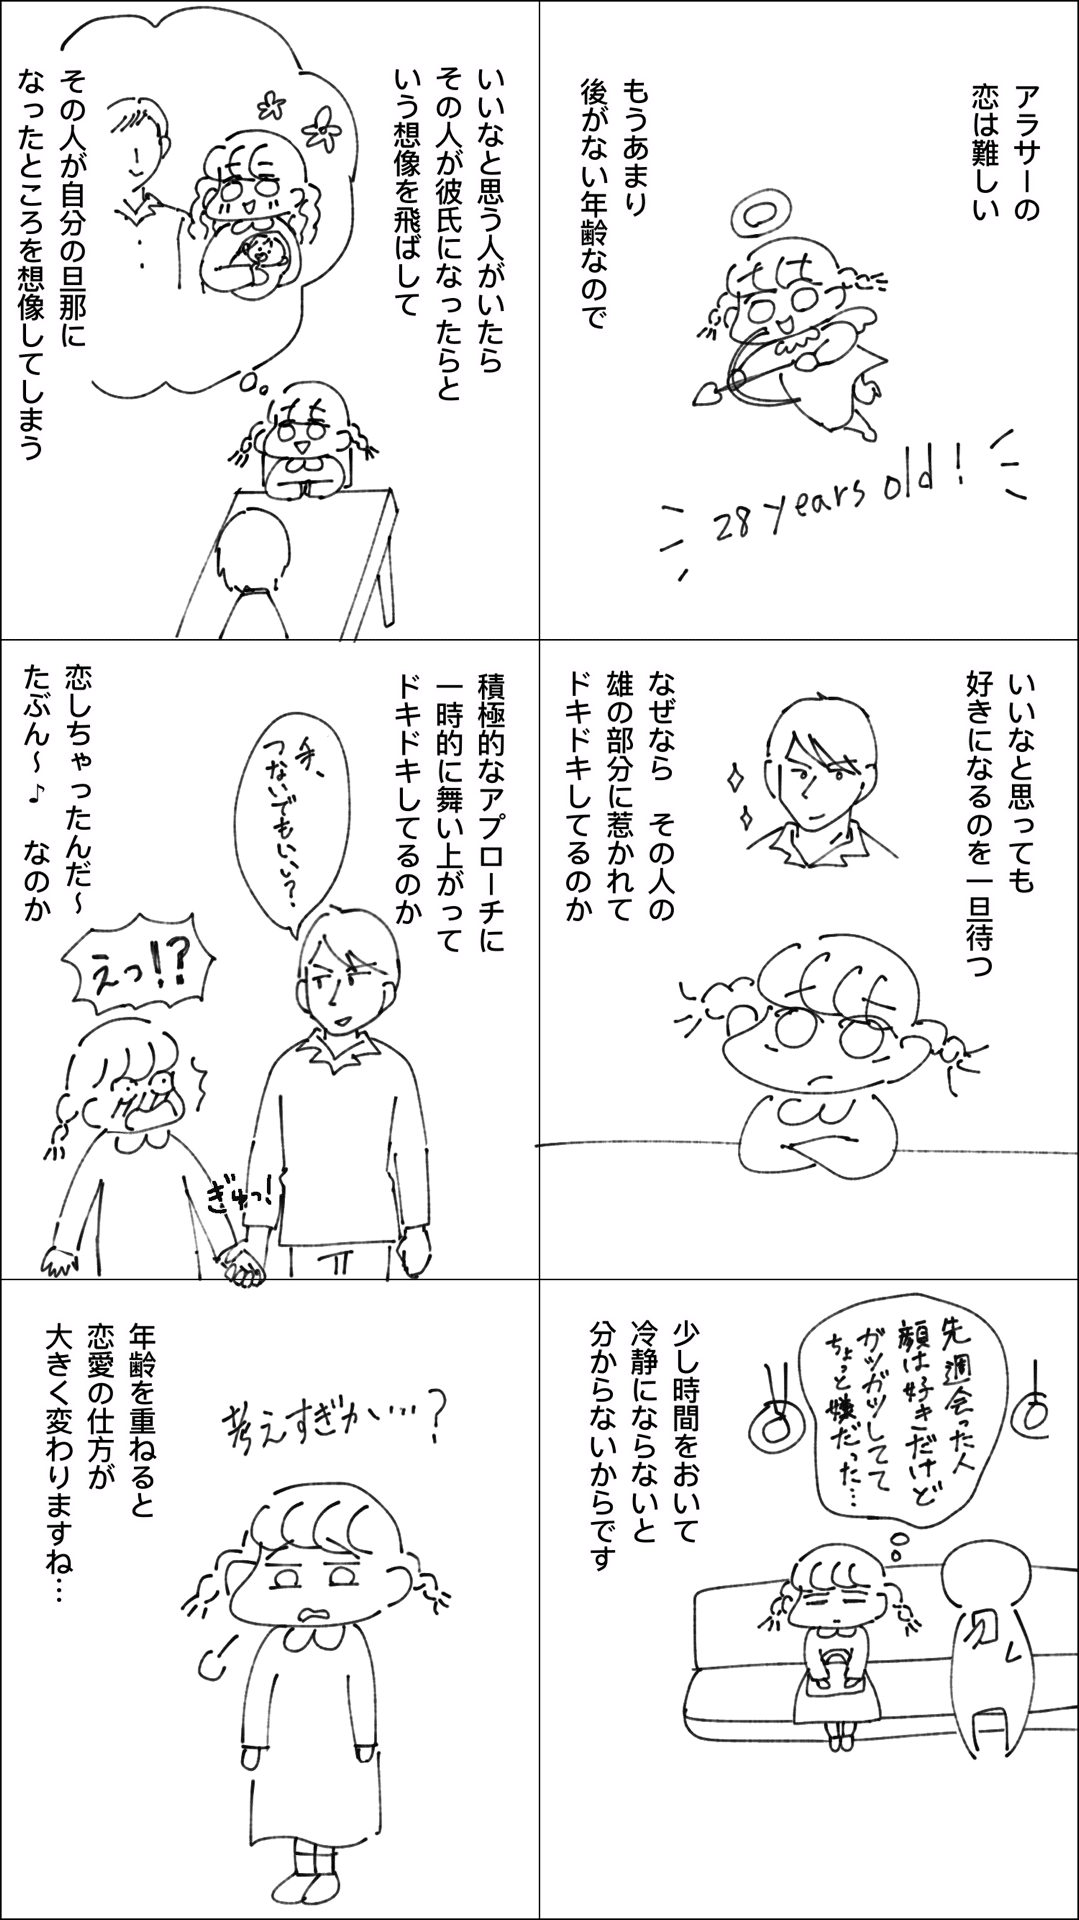 アラサーの
恋は難しい
もうあまり
後がない年齢なので
28 years old!
いいなと思う人がいたら
その人が彼氏になったらと
いう想像を飛ばして
その人が自分の旦那に
なったところを想像してしまう
いいなと思っても
好きになるのを一旦待つ
なぜなら その人の
雄の部分に惹かれて
ドキドキしてるのか
積極的なアプローチに
一時的に舞い上がって
ドキドキしてるのか
手、
つないでもいい?
えっ!?
ぎゅっ!
恋しちゃったんだ～
たぶん～♪ なのか
先週会った人
顔は好きだけど
ガツガツしてて
ちょっと嫌だった…
少し時間をおいて
冷静にならないと
分からないからです
考えすぎか…?
年齢を重ねると
恋愛の仕方が
大きく変わりますね…